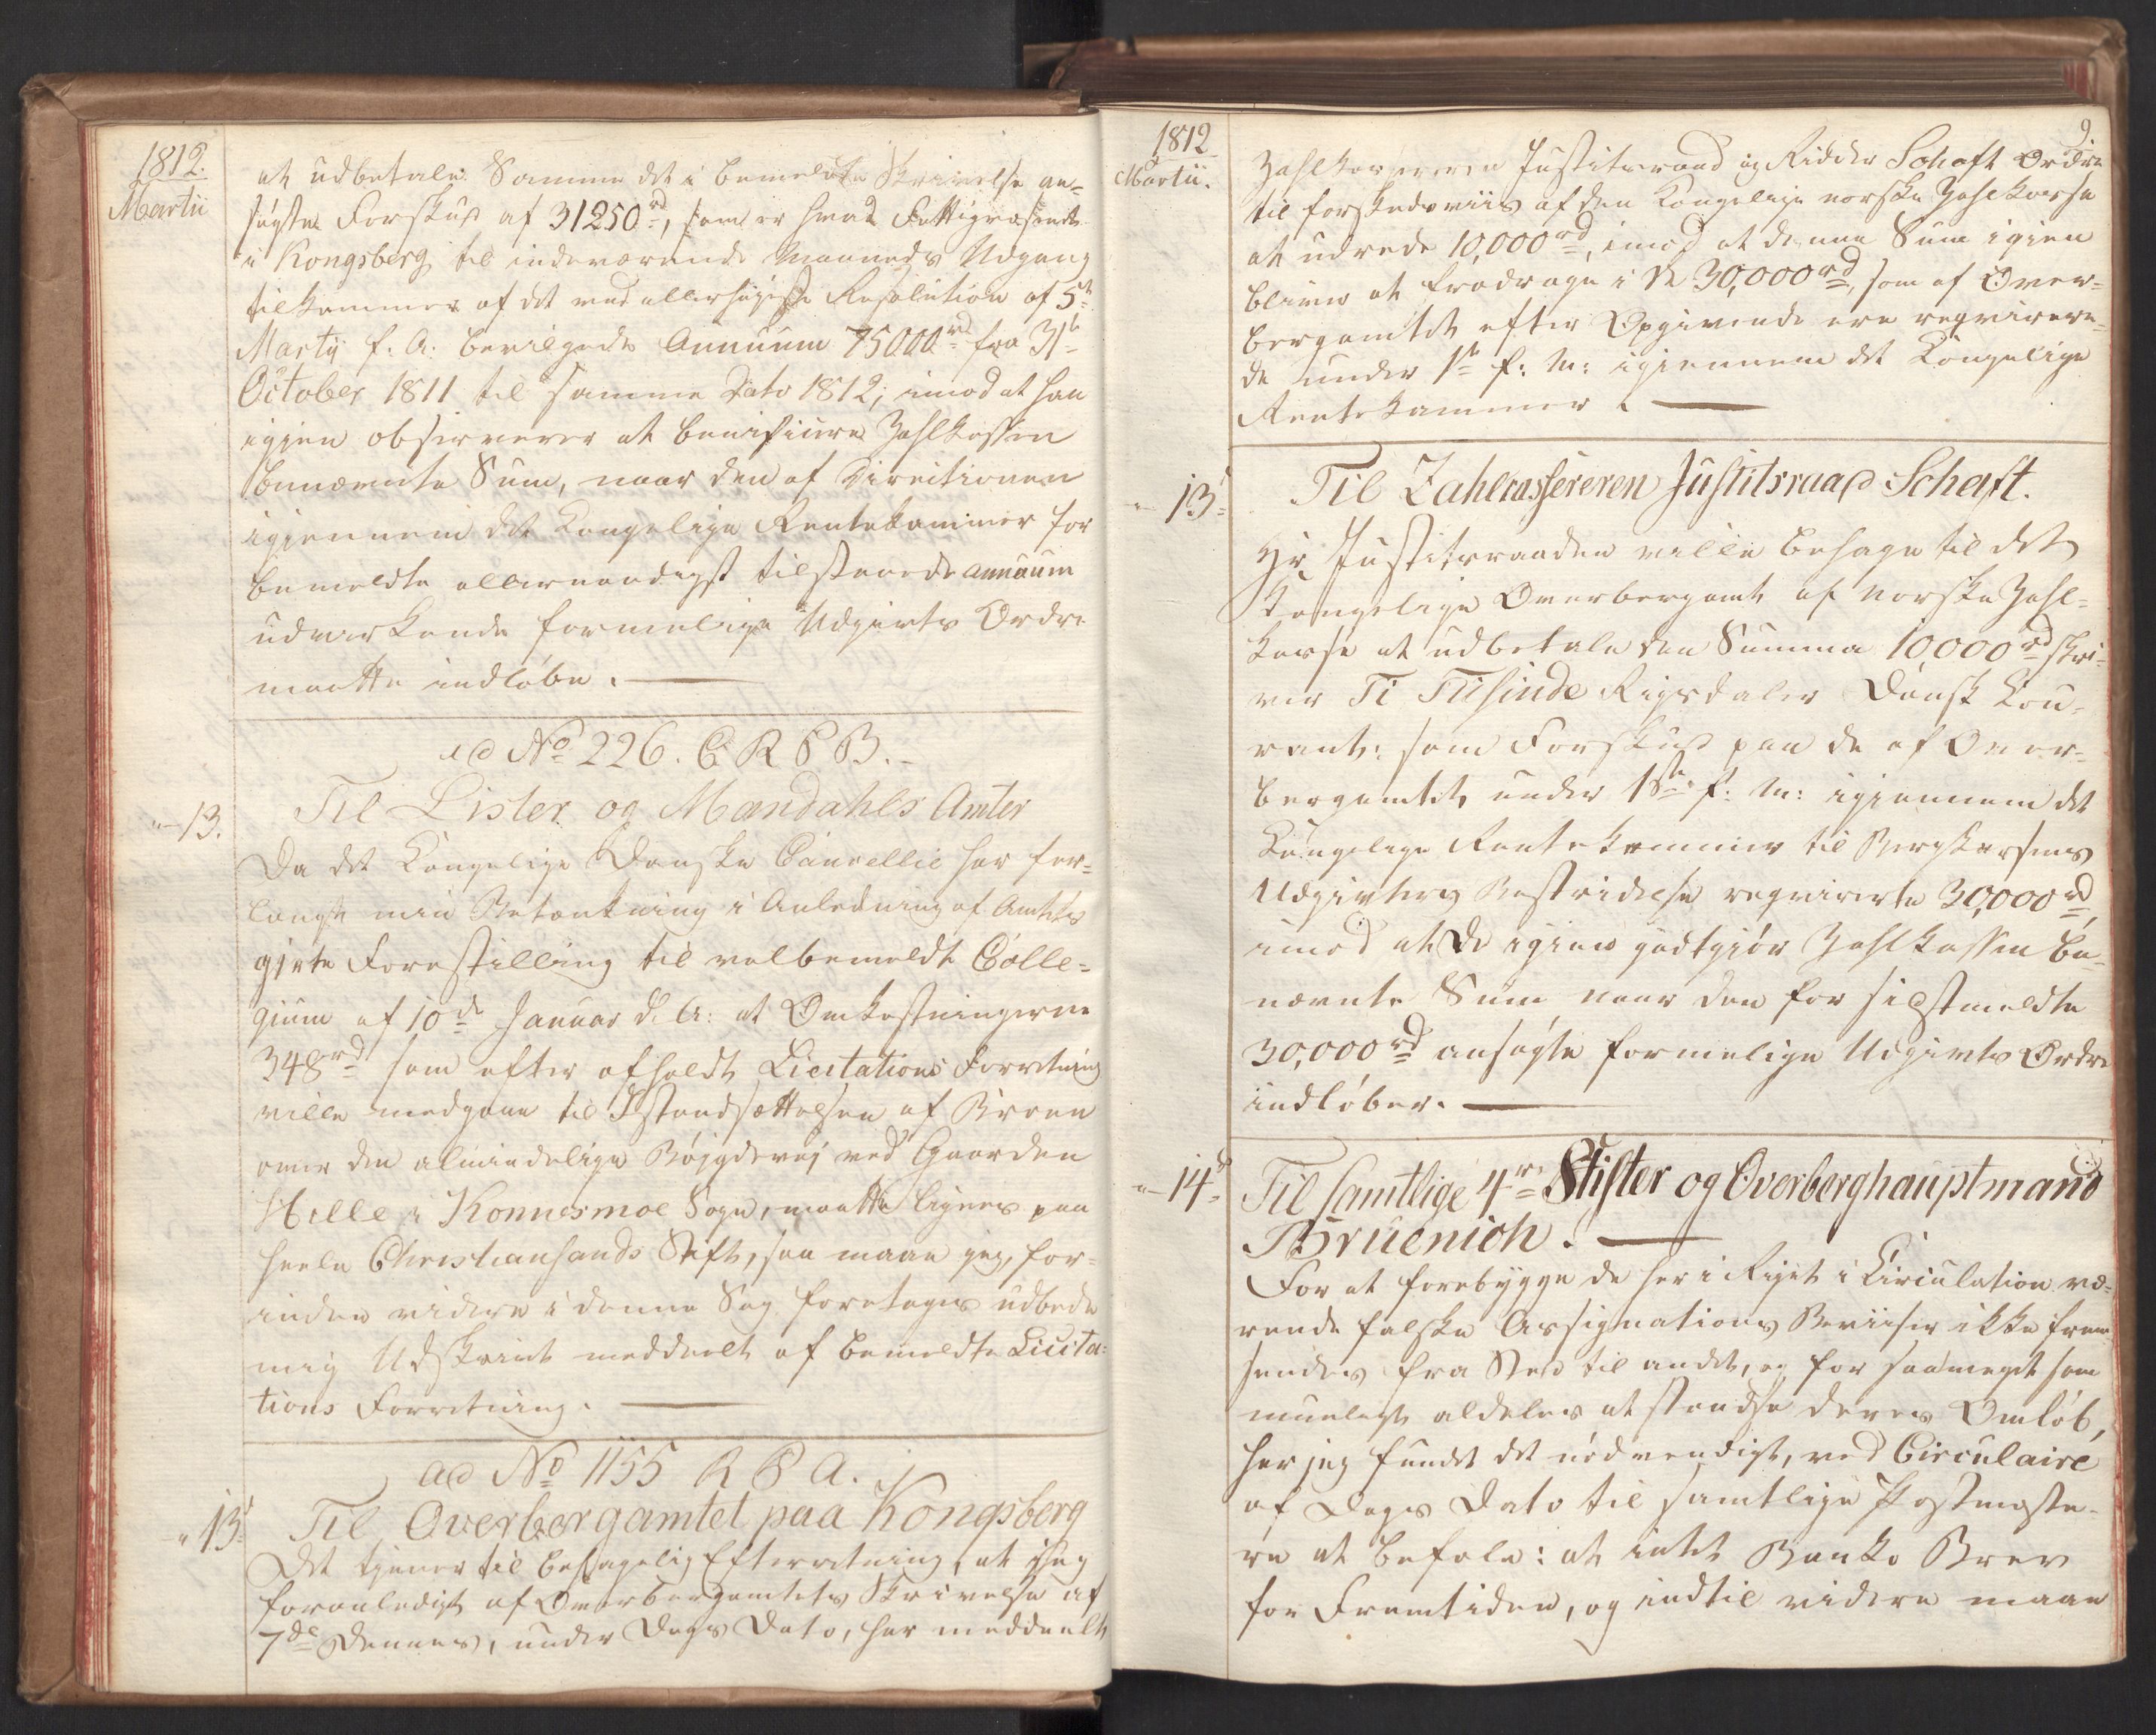 1812.
Martii
at udbetale Samme det i bemeldte Skrivelse an=
søgte Forskud af 31250 rd, som er hvad Fattigvæsenet
i Kongsberg til indeværende Maaneds Udgang
tilkommer af det ved allerhøieste Resolution af 5te
Martij f. A: bevilgede Annuum 75000 rd fra 31te
October 1811 til samme Dato 1812; imod at han
igjen observerer at Zahlkassen
benævnte Sum, naar den af Directionen
igjennem det Kongelige Rentekammer for
bemeldte allernaadigst tilstaaede annuum
udvirkende formelige Udgivts Ordre
maatte indløbe.
ad No 226. C R P B.
"- 13.
Til Lister og Mandahls Amter
Da det Kongelige Danske Cancellie har for=
langt min Betænkning i Anledning af Amtets
gjorte Forestilling til velbemeldte Colle=
gium af 10de Januar d. A: at Omkostningerne
348 rd som efter afholdt Licitations Forretning
ville medgaae til Istandsættelsen af Broen
over den almindelige Bøjgdevej ved Gaarden
Hille i Konnesmoe Sogn, maatte lignes paa
heele Christiansands Stift, saa maae jeg, for=
inden videre i denne Sag foretages udbede
mig Udskrivt meddeelt af bemeldte Licita=
tions Forretning.
ad No 1155 R P A.
" 13d
Til Overbergamtet paa Kongsberg
Det tjener til behagelig Efterretning, at jeg
foranlediget af Overbergamtets Skrivelse af
7de Dennes, under Dags Dato, har meddeelt
1812
Martii.
9.
Zahlkasserern Justitsraad og Ridder Schaft Ordre
til forskudsviis af den Kongelige norske Zahlkasse
at udrede 10,000 rd, imod at denne Sum igien
bliver at fradrage i de 30,000 rd, som af Over=
bergamtet efter Opgivende ere reqvirere=
de under 1te f: M: igiennem det Kongelige
Rentekammer.
"- 13d
Til Zahlcasfereren Justitsraad Schaft.
Hr Justitsraaden ville behage til det
Kongelige Overbergamt af norske Zahl=
kasse at udbetale den Summa 10,000 rd skri=
ver Ti Tusinde Rigsdaler Dansk Cou=
rant: som Forskud paa de af Over=
bergamtet under 1ste f: M: igiennem det
Kongelige Rentekammer til Bergkassens
Udgivters Bestridelse reqvirerte 30,000 rd,
imod at De igien godtgiør Zahlkassen be=
nævnte Sum naar den for sidstmeldte
30,000 rd ansøgte formelige Udgivts Ordre
indløber.
"- 14d
Til samtlige 4re Stifter og Overberghauptmand
Brüenich.
For at forebygge de her i Riget i Circulation væ=
rende falske Assignations Beviiser ikke frem
sendes fra Sted til andet, og for saameget som
mueligt aldeles at standse deres Omløb,
har jeg fundet det nødvendigt, ved Circulaire
af Dags Dato til samtlige Postmeste=
re at befale: at intet Banko Brev
for Fremtiden, og indtil videre maae